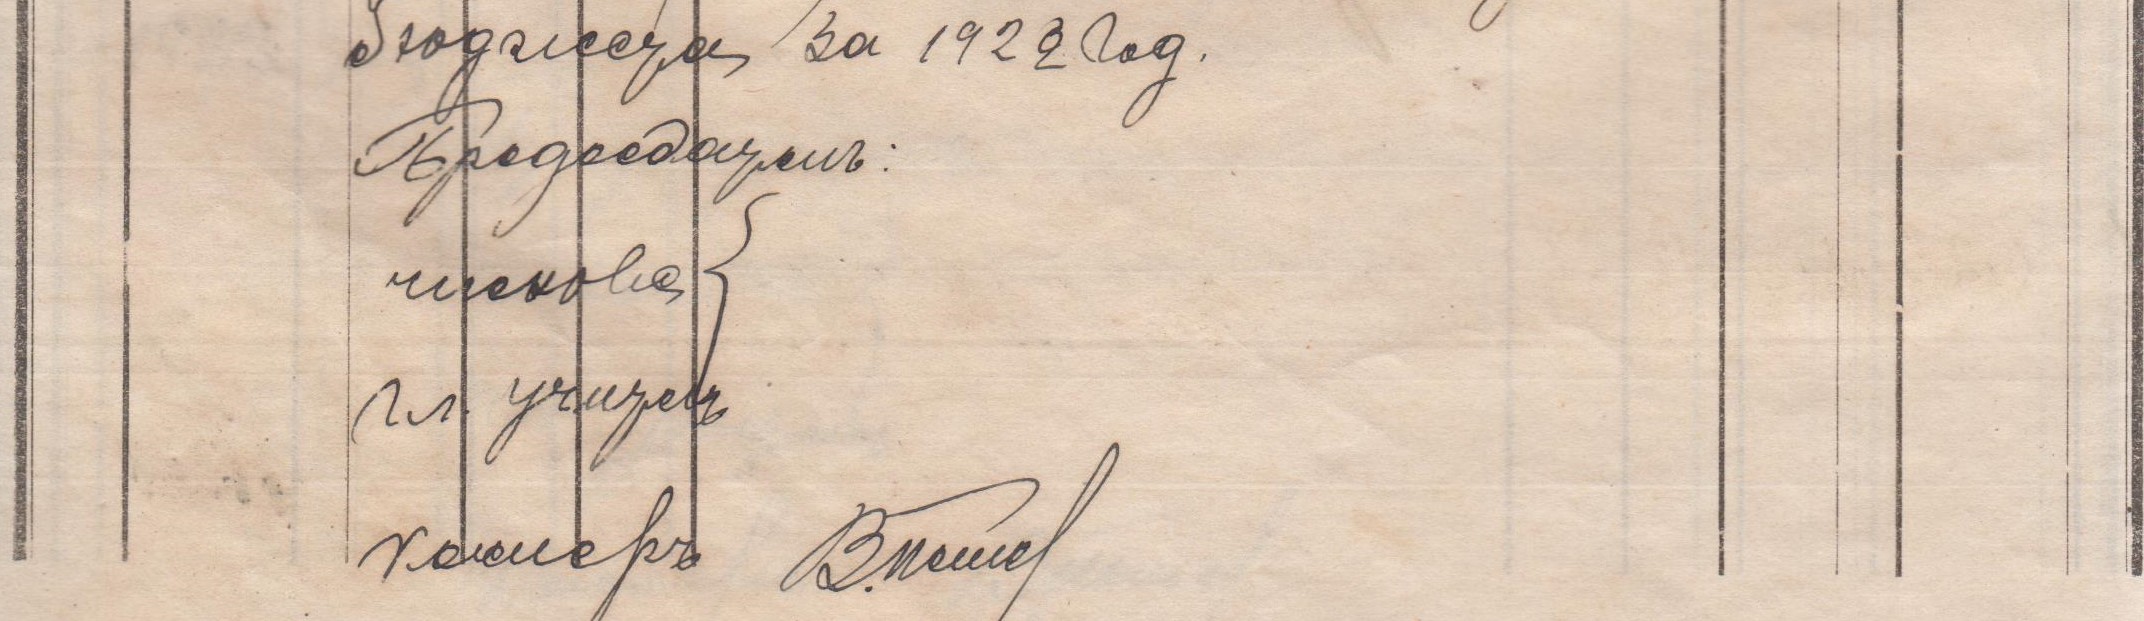 бюджета за 1922 год.
Председатель:
членове {
Гл. учитель
касиеръ В. Пешев